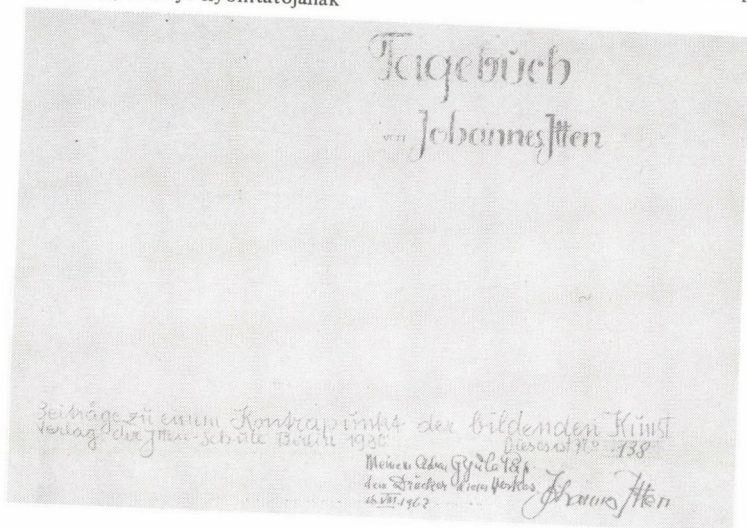 Tagebuch
von Johannes Itten
Beiträge zu einem Kontrapunkt der bildenden Kunst
Verlag der Itten-Schule Berlin 1930
Dieses ist No 138
Meinem Gyula Pap
dem Drucker dieses Werkes
1962
Johannes Itten